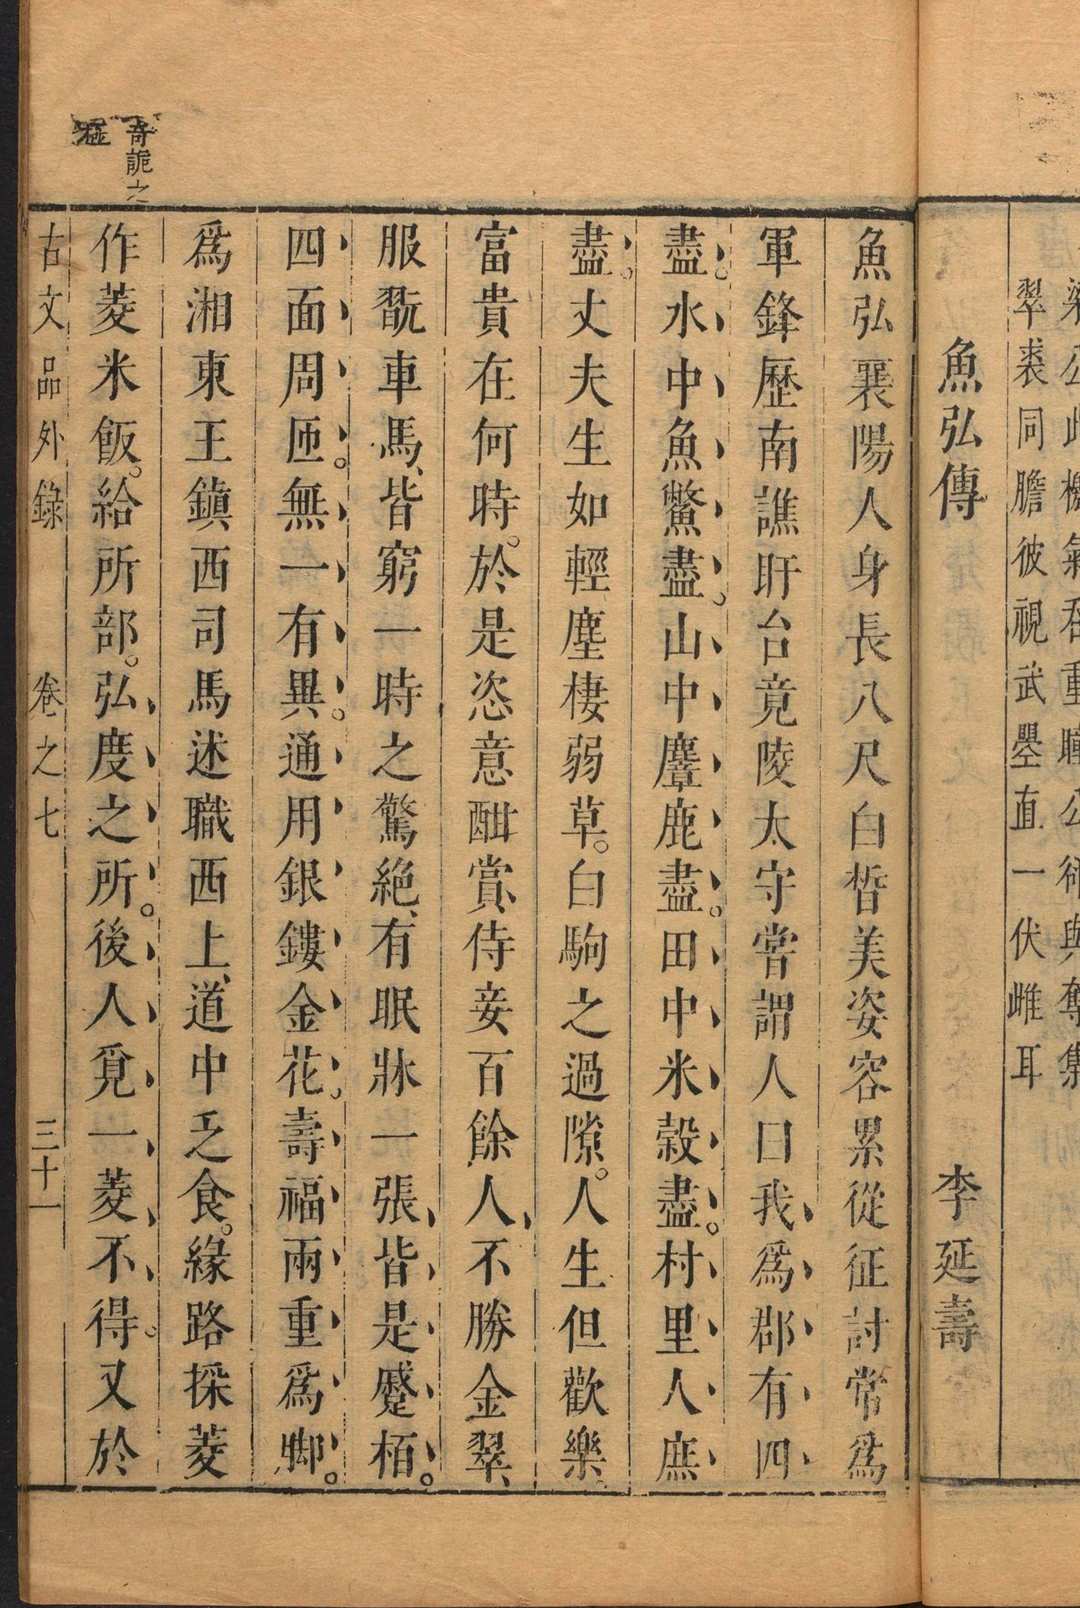 翠裘同膽彼視武曌直一伏雌耳
魚弘傳　李延壽
魚弘襄陽人身長八尺白晳美姿容累從征討常爲
軍鋒歷南譙盱台竟陵太守嘗謂人曰我爲郡有四
盡。水中魚鱉盡。山中麞鹿盡。田中米穀盡。村里人庶
盡。丈夫生如輕塵棲弱草。白駒之過隙。人生但歡樂
富貴在何時。於是恣意酣賞、侍妾百餘人、不勝金翠、
服翫車馬、皆窮一時之驚絶、有眠牀一張、皆是蹙栢。
四面周匝。無一有異。通用銀鏤金花。壽福兩重爲脚。
爲湘東王鎮西司馬述職西上、道中乏食。緣路採菱
作菱米飯。給所部。弘度之所。後人覓一菱不得。又於
古文品外錄　卷之七　三十一
奇詭之
極